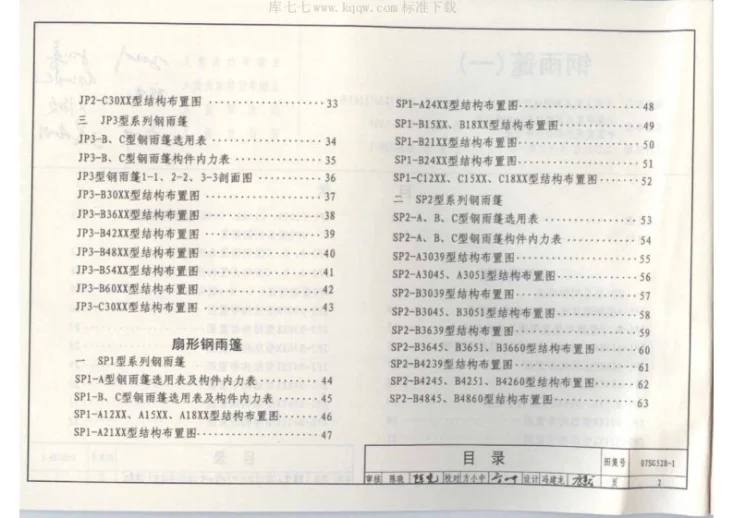 库七七www.kqqw.com标准下载
JP2-C30XX型结构布置图 ················ 33
三 JP3型系列钢雨篷
JP3-B、C型钢雨篷选用表 ················ 34
JP3-B、C型钢雨篷构件内力表 ················ 35
JP3型钢雨篷1-1、2-2、3-3剖面图 ················ 36
JP3-B30XX型结构布置图 ················ 37
JP3-B36XX型结构布置图 ················ 38
JP3-B42XX型结构布置图 ················ 39
JP3-B48XX型结构布置图 ················ 40
JP3-B54XX型结构布置图 ················ 41
JP3-B60XX型结构布置图 ················ 42
JP3-C30XX型结构布置图 ················ 43
扇形钢雨篷
一 SP1型系列钢雨篷
SP1-A型钢雨篷选用表及构件内力表 ················ 44
SP1-B、C型钢雨篷选用表及构件内力表 ················ 45
SP1-A12XX、A15XX、A18XX型结构布置图 ················ 46
SP1-A21XX型结构布置图 ················ 47
SP1-A24XX型结构布置图 ················ 48
SP1-B15XX、B18XX型结构布置图 ················ 49
SP1-B21XX型结构布置图 ················ 50
SP1-B24XX型结构布置图 ················ 51
SP1-C12XX、C15XX、C18XX型结构布置图 ················ 52
二 SP2型系列钢雨篷
SP2-A、B、C型钢雨篷选用表 ················ 53
SP2-A、B、C型钢雨篷构件内力表 ················ 54
SP2-A3039型结构布置图 ················ 55
SP2-A3045、A3051型结构布置图 ················ 56
SP2-B3039型结构布置图 ················ 57
SP2-B3045、B3051型结构布置图 ················ 58
SP2-B3639型结构布置图 ················ 59
SP2-B3645、B3651、B3660型结构布置图 ················ 60
SP2-B4239型结构布置图 ················ 61
SP2-B4245、B4251、B4260型结构布置图 ················ 62
SP2-B4845、B4860型结构布置图 ················ 63
目录 图集号 07SG528-1
审核 陈晓 校对 方小中 设计 冯建龙 页 2